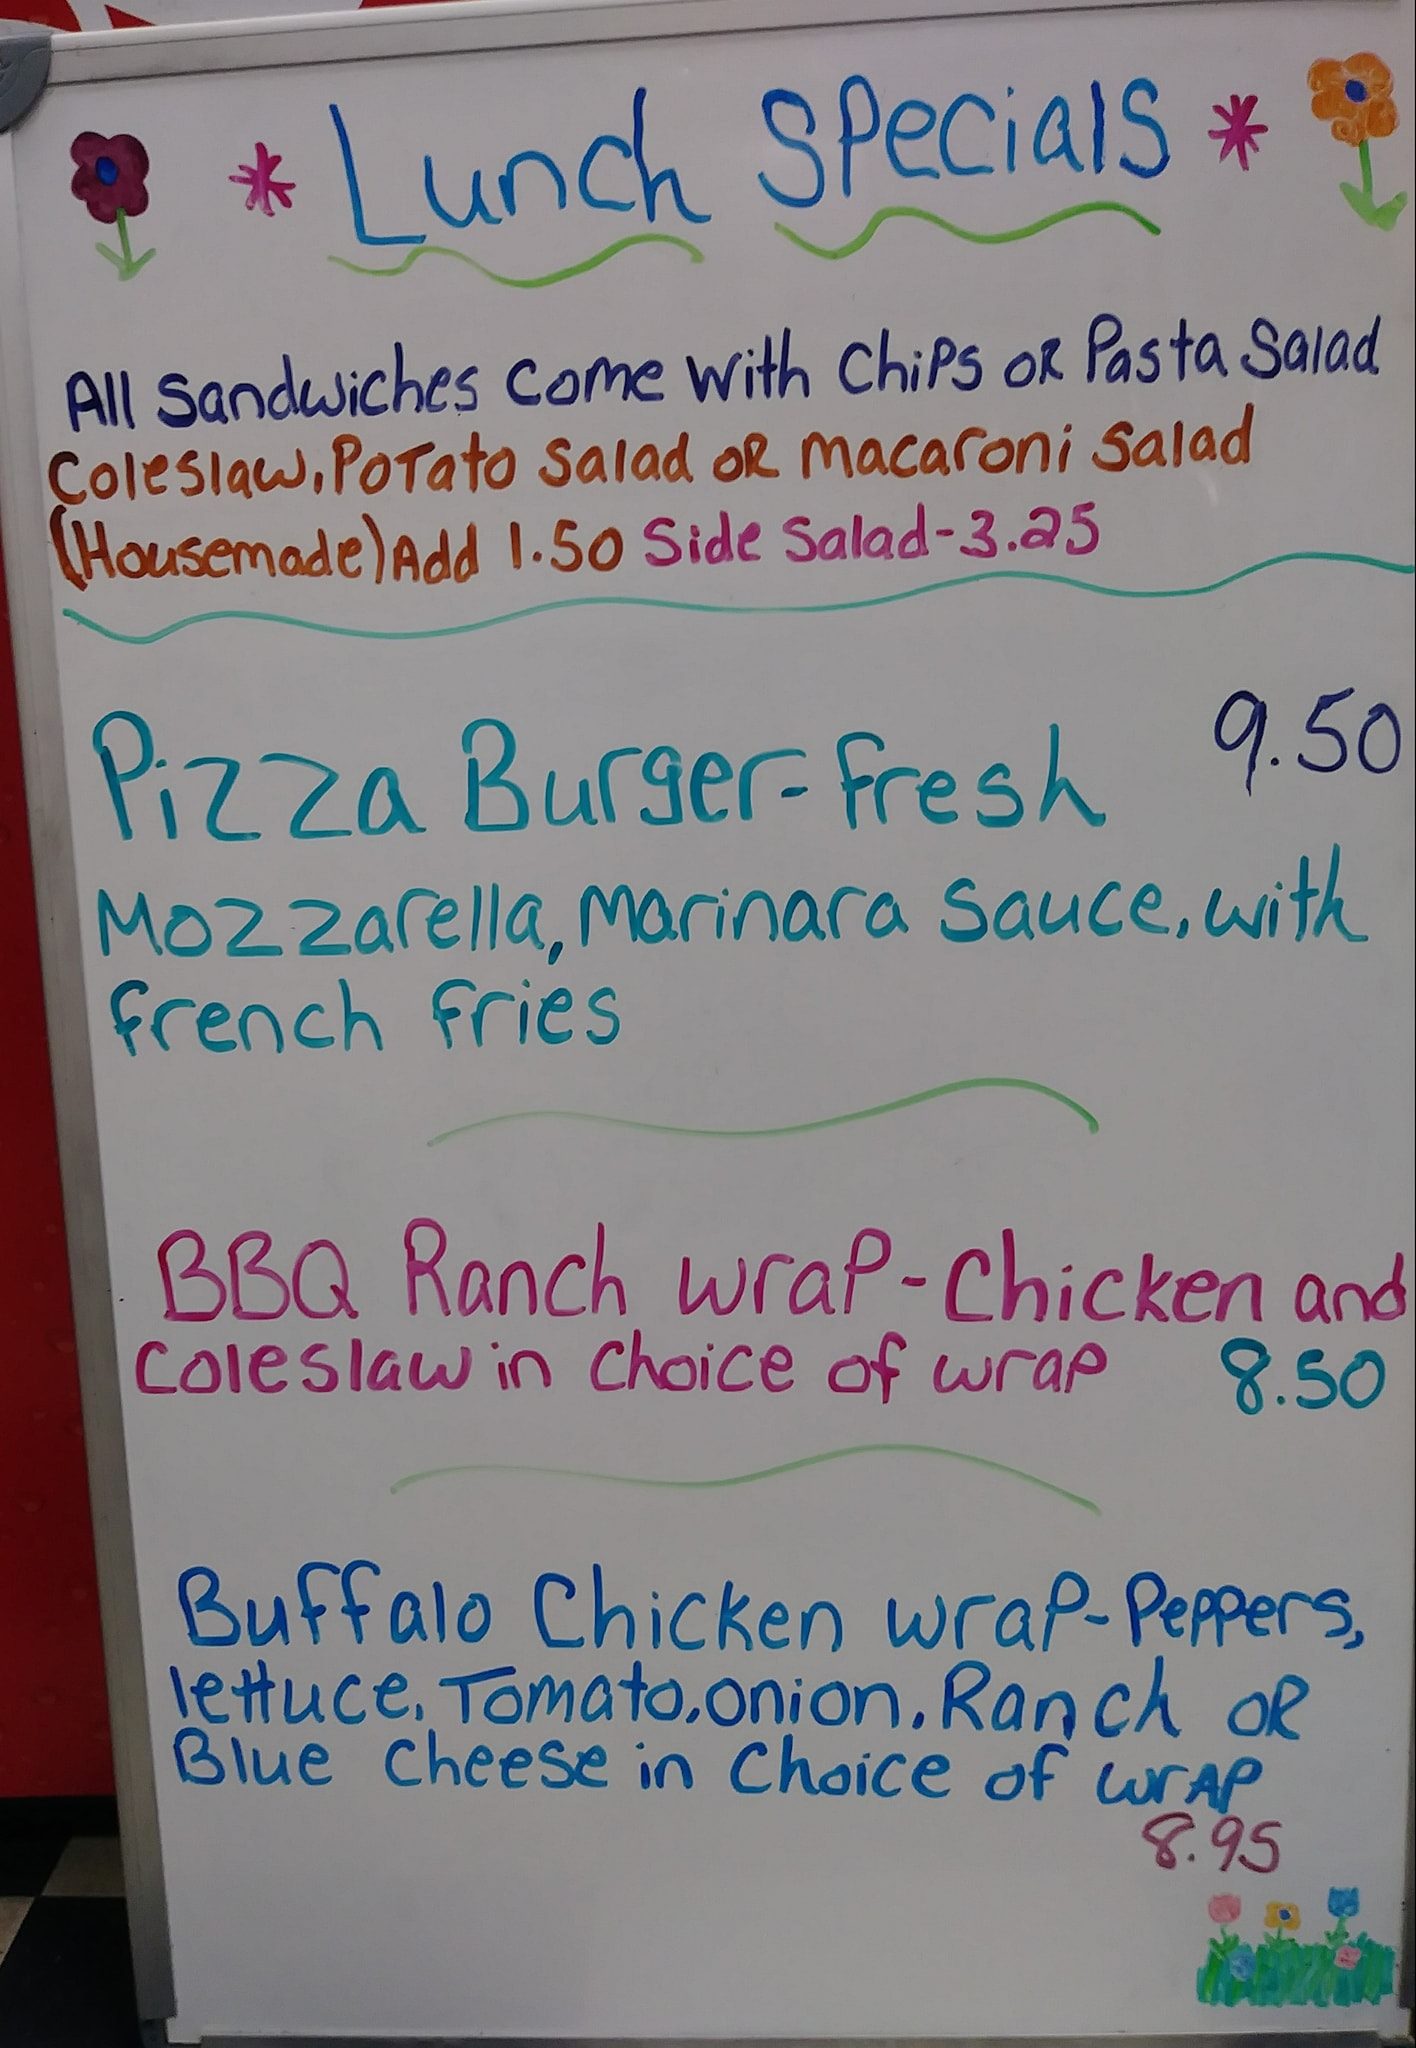 * Lunch Specials *
All Sandwiches Come With Chips OR Pasta Salad
Coleslaw, Potato Salad OR Macaroni Salad
(Housemade) Add 1.50 Side Salad - 3.25
Pizza Burger - Fresh 9.50
Mozzarella, Marinara Sauce, with
French Fries
BBQ Ranch Wrap - Chicken and
Coleslaw in Choice of wrap 8.50
Buffalo Chicken Wrap - Peppers,
lettuce, Tomato, onion, Ranch OR
Blue Cheese in Choice of wrAP
8.95